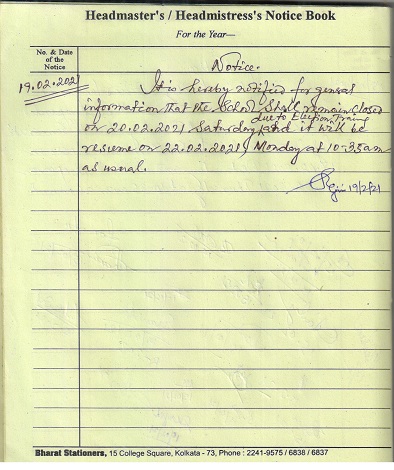 Headmaster's / Headmistress's Notice Book
For the Year—
No. & Date
of the
Notice
Notice.
19.02.2021
It is hereby notified for general
information that the School Shall remain closed
due to Election Training
on 20.02.2021 Saturday and it will be
resume on 22.02.2021, Monday at 10-35 am
as usual.
19/2/21
Bharat Stationers, 15 College Square, Kolkata - 73, Phone : 2241-9575 / 6838 / 6837